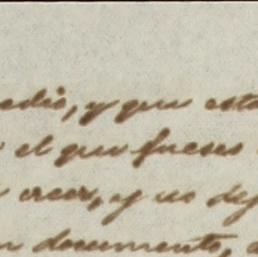 edio, y que esta
el que fuese
creer, y no dej
n documento,